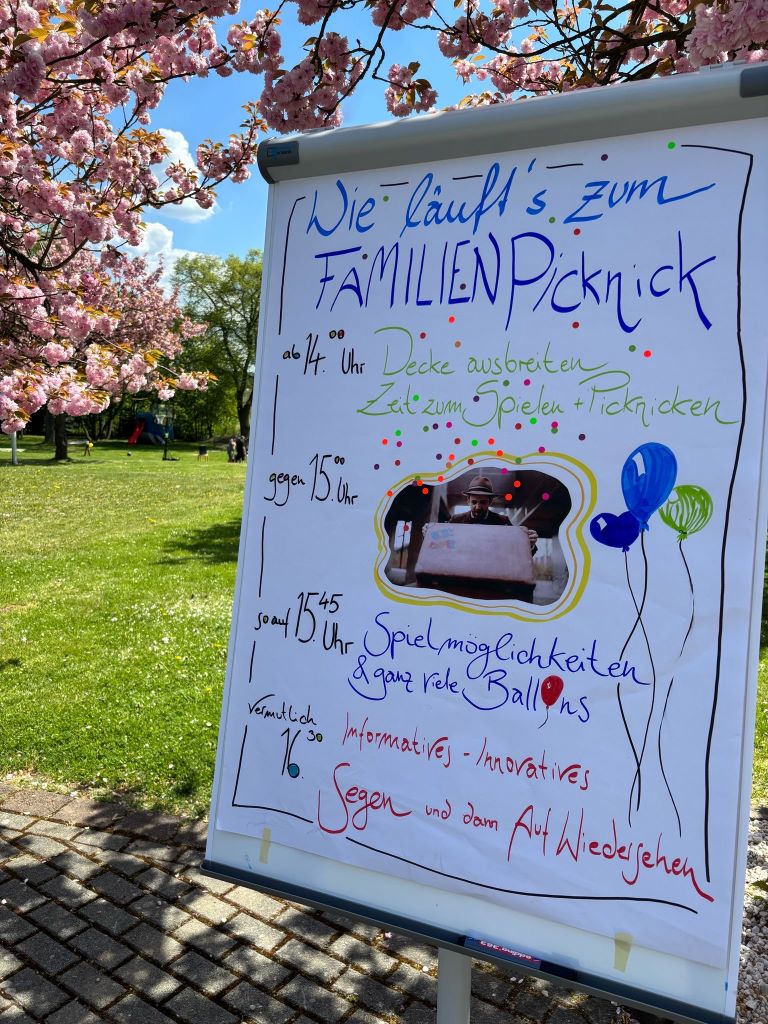 Wie läuft's zum
FAMILIENPicknick
ab 14.00 Uhr Decke ausbreiten
Zeit zum Spielen + Picknicken
gegen 15.00 Uhr
so auf 15.45 Uhr Spielmöglichkeiten
& ganz viele Ballons
vermutlich
16.30 Informatives - Innovatives
Segen und dann Auf Wiedersehen
edding 383